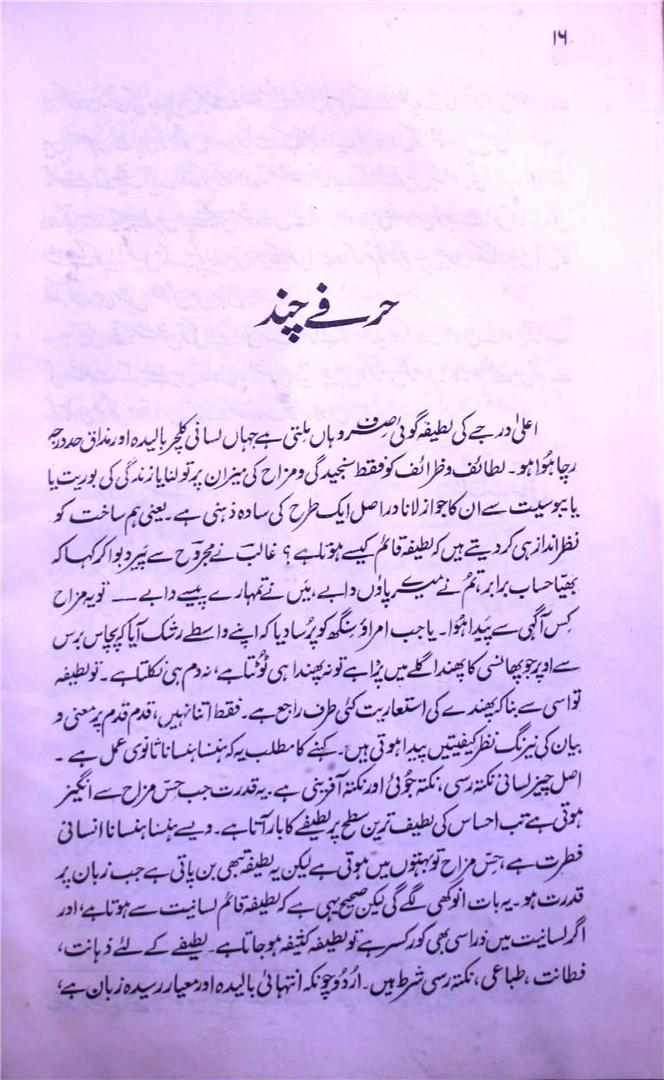 ۱۶
حرفے چند
اعلیٰ درجے کی لطیفہ گوئی صرف وہاں ملتی ہے جہاں لسانی کلچر بالیدہ اور مذاق حد درجہ
رچا ہوا ہو۔ لطائف و ظرائف کو فقط سنجیدگی و مزاح کی میزان پر تولنا یا زندگی کی بوریت یا
یا یبوسیت سے ان کا جواز لانا دراصل ایک طرح کی سادہ ذہنی ہے۔ یعنی ہم ساخت کو
نظر انداز ہی کر دیتے ہیں کہ لطیفہ قائم کیسے ہوتا ہے؟ غالب نے مجروح سے پیر دبوا کر کہا کہ
بھیا حساب برابر، تم نے میرے پاؤں دابے، میں نے تمہارے پیسے دابے — تو یہ مزاح
کس آگہی سے پیدا ہوا۔ یا جب امراؤ سنگھ کو پرسا دیا کہ اپنے واسطے رشک آیا کہ پچاس برس
سے اوپر جو پھانسی کا پھندا گلے میں پڑا ہے تو نہ پھندا ہی ٹوٹتا ہے، نہ دم ہی نکلتا ہے۔ تو لطیفہ
تو اسی سے بنا کہ پھندے کی استعاریت کئی طرف راجع ہے۔ فقط اتنا نہیں، قدم قدم پر معنی و
بیان کی نیرنگ نظر کیفیتیں پیدا ہوتی ہیں۔ کہنے کا مطلب یہ کہ ہنسنا ہنسانا ثانوی عمل ہے۔
اصل چیز لسانی نکتہ رسی، نکتہ جوئی اور نکتہ آفرینی ہے۔ یہ قدرت جب حسِ مزاح سے انگیز
ہوتی ہے تب احساس کی لطیف ترین سطح پر لطیفے کا بار آتا ہے۔ ویسے ہنسنا ہنسانا انسانی
فطرت ہے، حسِ مزاح تو بہتوں میں ہوتی ہے لیکن یہ لطیفہ تبھی بن پاتی ہے جب زبان پر
قدرت ہو۔ یہ بات انوکھی لگے گی لیکن صحیح یہی ہے کہ لطیفہ قائم لسانیت سے ہوتا ہے، اور
اگر لسانیت میں ذرا سی بھی کور کسر ہے تو لطیفہ کثیفہ ہو جاتا ہے۔ لطیفے کے لئے ذہانت،
فطانت، طباعی، نکتہ رسی شرط ہیں۔ اردو چونکہ انتہائی بالیدہ اور معیار رسیدہ زبان ہے،